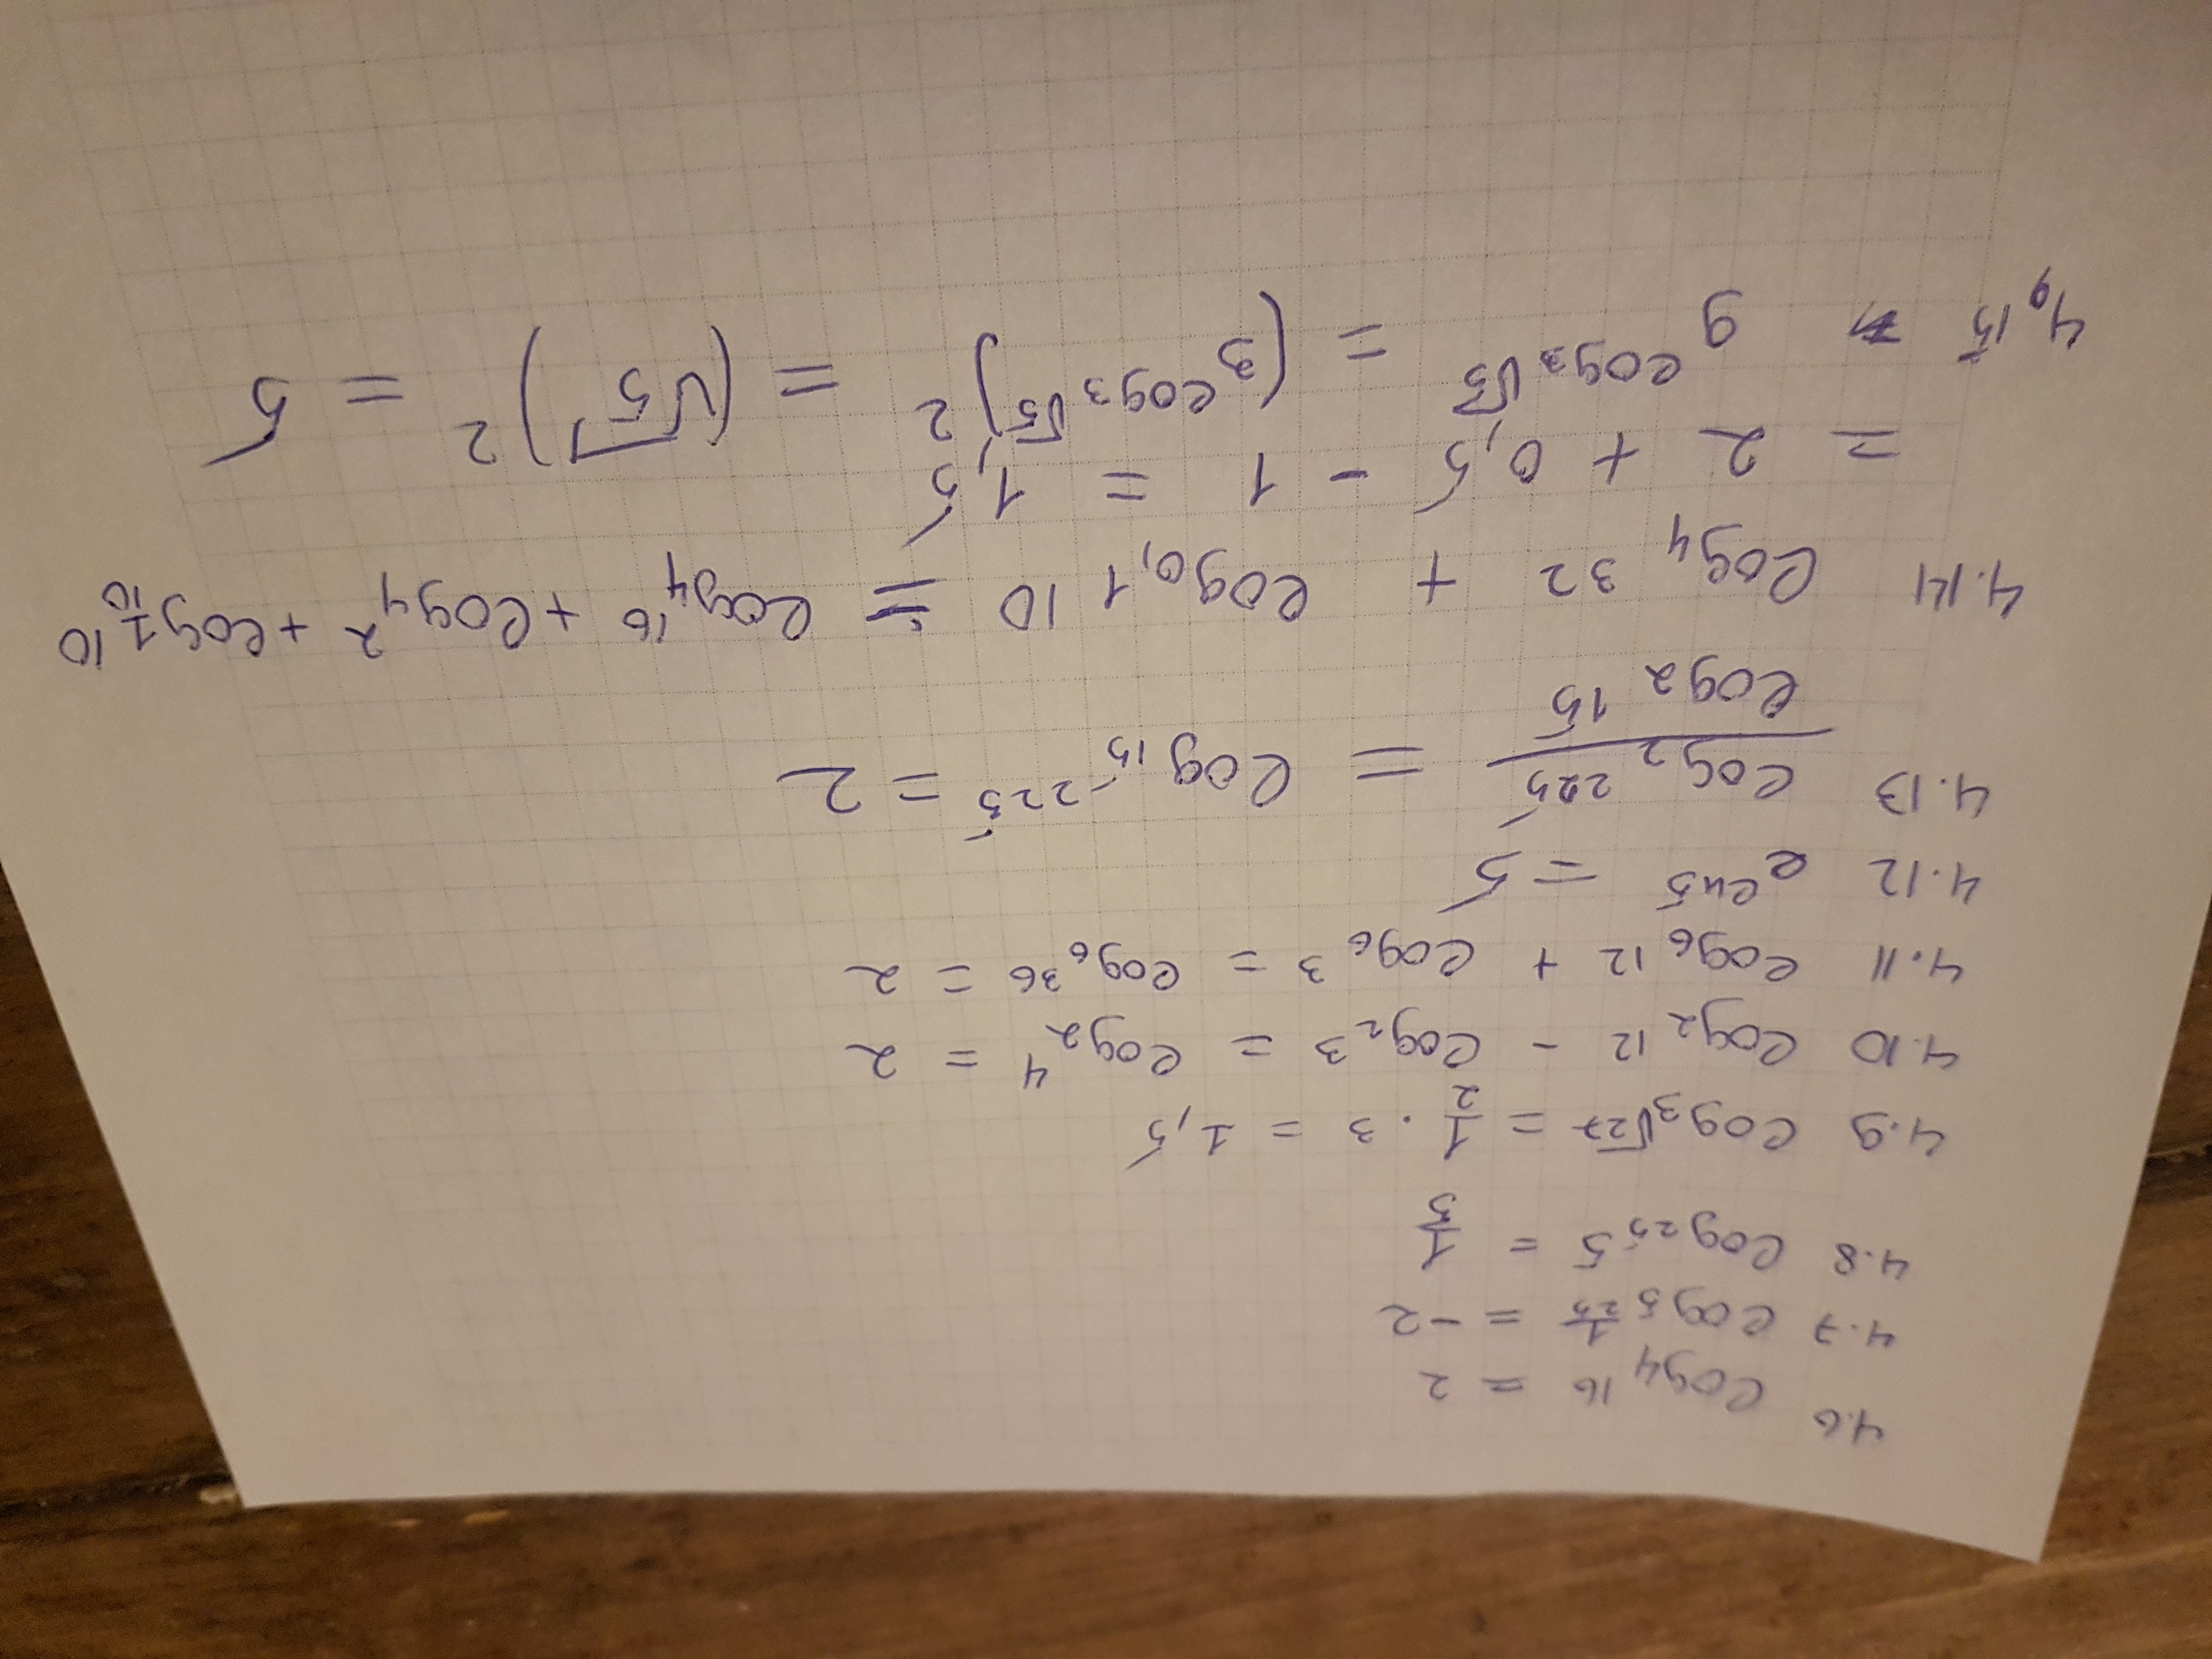 4.6 log₄ 16 = 2
4.7 log₅ 1/25 = -2
4.8 log₂₅ 5 = 1/5
4.9 log₃ √27 = 1/2 · 3 = 1,5
4.10 log₂ 12 - log₂ 3 = log₂ 4 = 2
4.11 log₆ 12 + log₆ 3 = log₆ 36 = 2
4.12 e^(ln5) = 5
4.13 (log₂ 225)/(log₂ 15) = log₁₅ 225 = 2
4.14 log₄ 32 + log_(0,1) 10 = log₄ 16 + log₄ 2 + log_(1/10) 10
= 2 + 0,5 - 1 = 1,5
4.15 9^(log₃ √5) = (3^(log₃ √5))² = (√5)² = 5